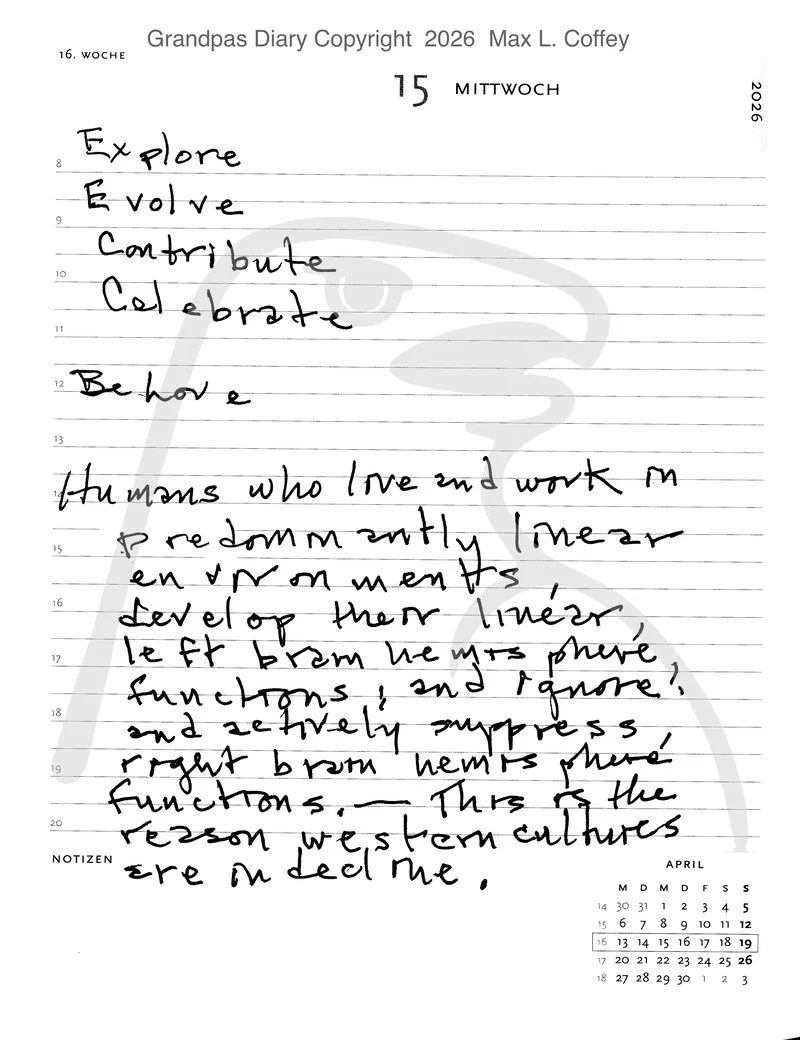 Grandpas Diary Copyright 2026 Max L. Coffey
16. WOCHE
15 MITTWOCH
2026
Explore
8
Evolve
9
Contribute
10
Celebrate
11
12
Behove
13
Humans who live and work in
predominantly linear
15
environments,
16
develop their linear,
left brain hemisphere,
17
functions; and ignore,
18
and actively suppress,
right brain hemisphere
19
functions. — This is the
20
reason western cultures
NOTIZEN
are in decline.
APRIL
M D M D F S S
14 30 31 1 2 3 4 5
15 6 7 8 9 10 11 12
16 13 14 15 16 17 18 19
17 20 21 22 23 24 25 26
18 27 28 29 30 1 2 3